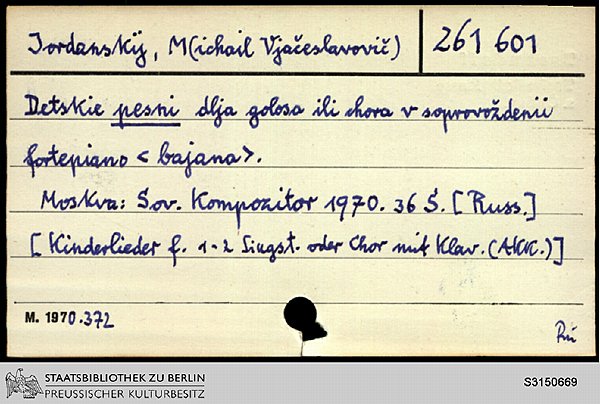 Jordanskij, M(ichail Vjačeslavovič) 261 601
Detskie pesni dlja golosa ili chora v soprovoždenii
fortepiano <bajana>.
Moskva: Sov. Kompozitor 1970. 36 S. [Russ.]
[Kinderlieder f. 1-2 Singst. oder Chor mit Klav. (Akk.)]
M. 1970.372
Rü
STAATSBIBLIOTHEK ZU BERLIN
PREUSSISCHER KULTURBESITZ
S3150669